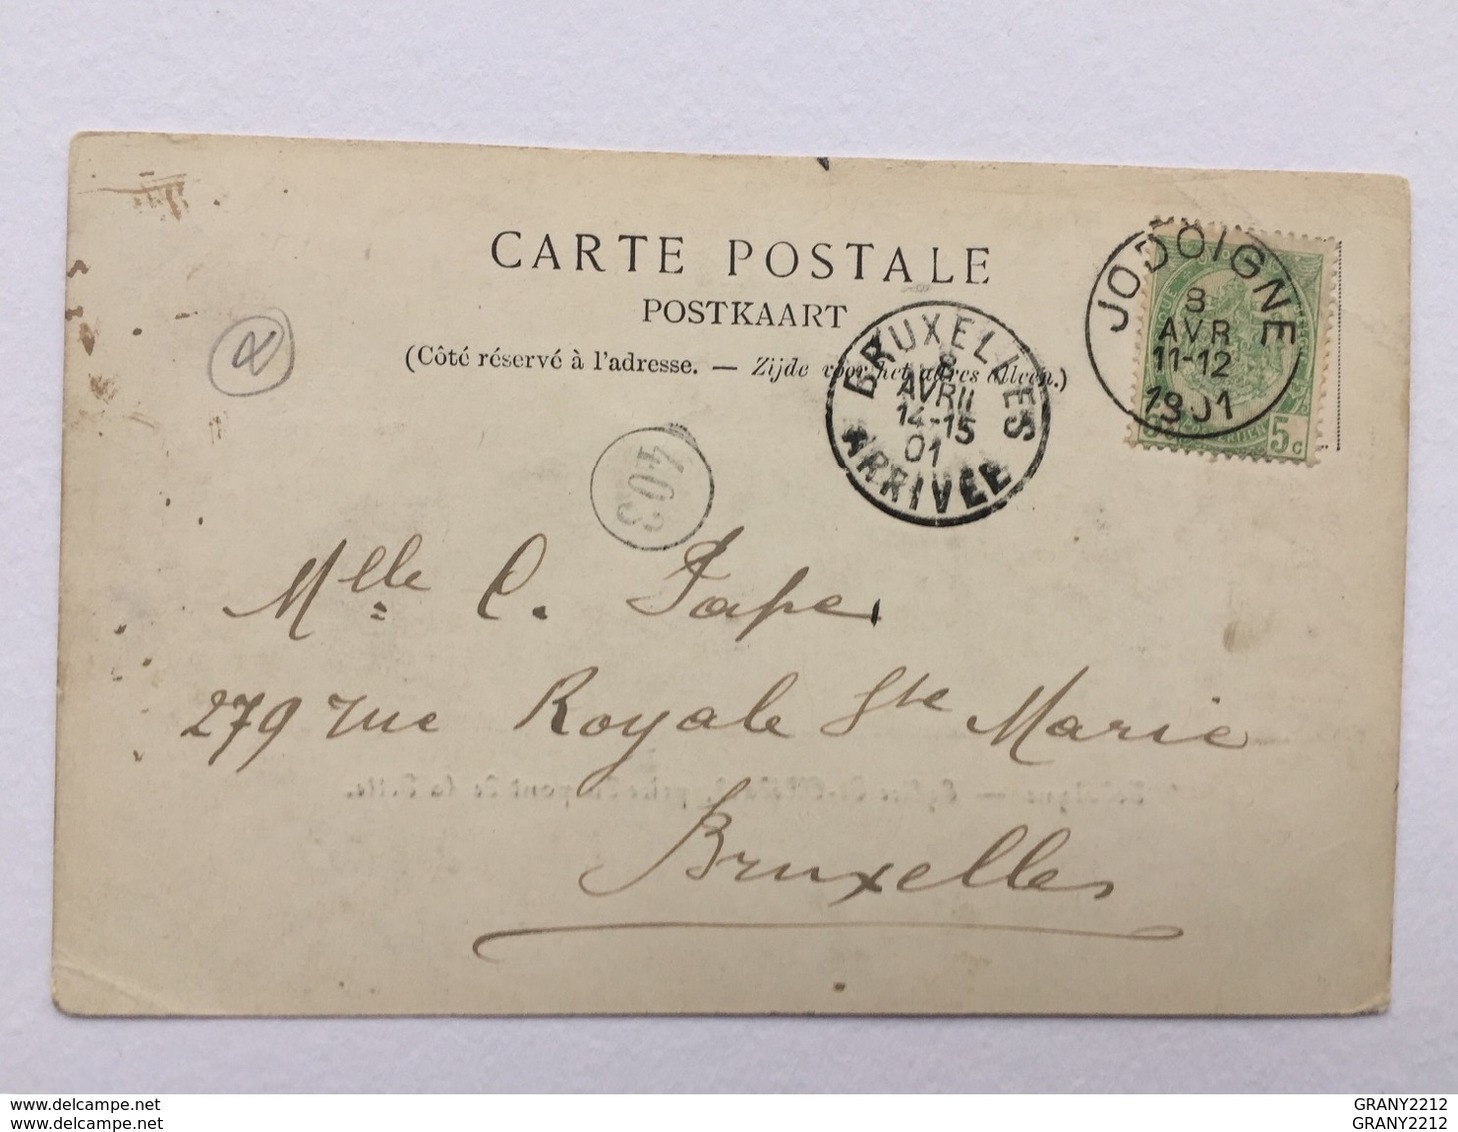 CARTE POSTALE
POSTKAART
(Côté réservé à l'adresse. — Zijde voor het adres alleen.)
JODOIGNE
8
AVR
11-12
1901
5c
BRUXELLES
8
AVRIL
14-15
01
ARRIVÉE
403
Mlle C. Pape
279 rue Royale Ste Marie
Bruxelles
www.delcampe.net
www.delcampe.net
GRANY2212
GRANY2212